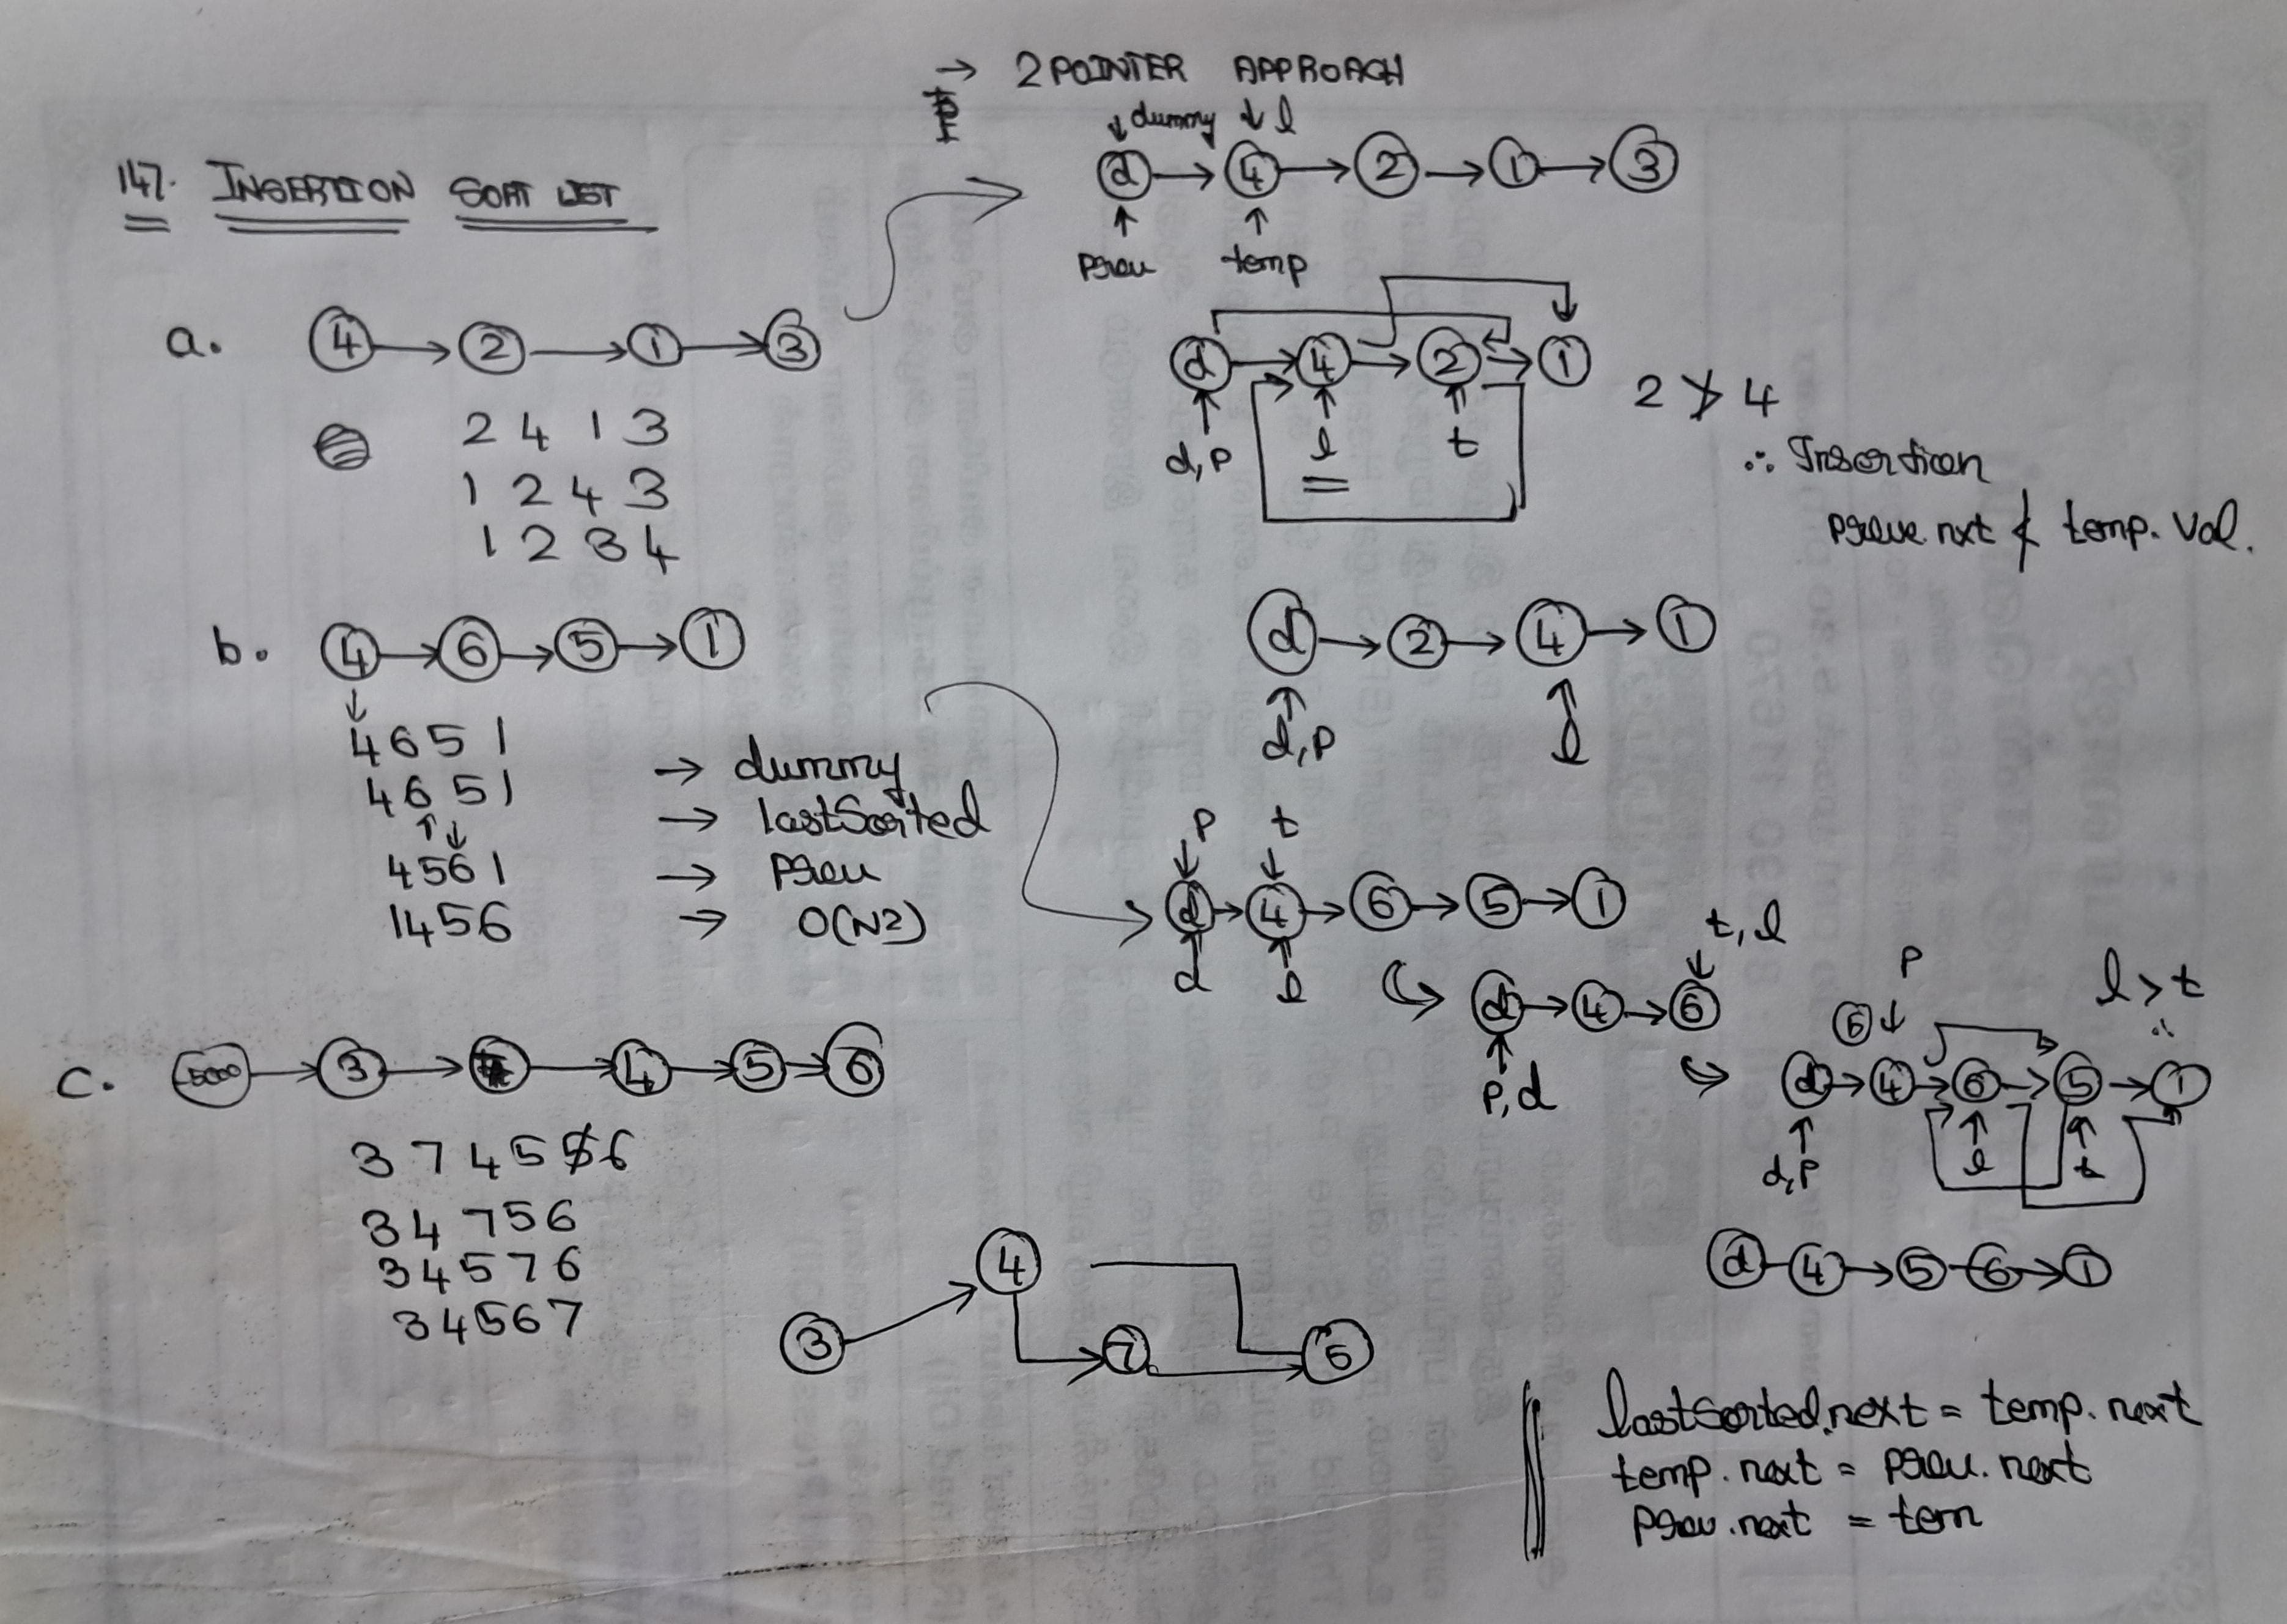 147. INSERTION SORT LIST
a. 4 → 2 → 1 → 3
2 4 1 3
1 2 4 3
1 2 3 4
b. 4 → 6 → 5 → 1
4 6 5 1
4 6 5 1
4 5 6 1
1 4 5 6
→ dummy
→ lastSorted
→ Prev
→ O(N2)
c. -5000 → 3 → → 4 → 5 → 6
3 7 4 5 6
3 4 7 5 6
3 4 5 7 6
3 4 5 6 7
3 4 7 6
→ 2 POINTER APPROACH
dummy l
d → 4 → 2 → 1 → 3
Prev temp
d → 4 → 2 → 1
d, P l t
2 ≯ 4
∴ Insertion
Preve.nxt ≮ temp.val.
d → 2 → 4 → 1
d, P l
P t
d → 4 → 6 → 5 → 1
d l
t, l
d → 4 → 6
P, d
P l > t
6
d → 4 → 6 → 5 → 1
d, P l t
d → 4 → 5 → 6 → 1
lastSorted.next = temp.next
temp.next = Prev.next
Prev.next = tem